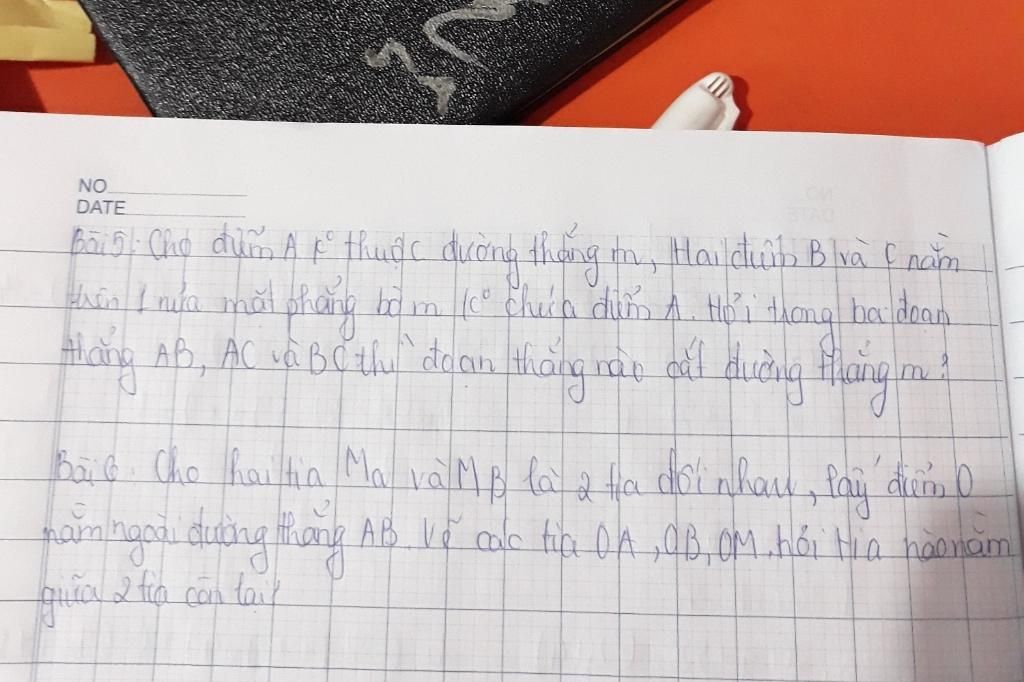 NO
DATE
Bài 5: Cho điểm A k° thuộc đường thẳng m, Hai điểm B và C nằm
trên 1 nửa mặt phẳng bờ m k° chứa điểm A. Hỏi trong ba đoạn
thẳng AB, AC và BC thì đoạn thẳng nào cắt đường thẳng m?
Bài 6. Cho hai tia Ma và MB là 2 tia đối nhau, lấy điểm O
nằm ngoài đường thẳng AB. Vẽ các tia OA, OB, OM, hỏi tia nào nằm
giữa 2 tia còn lại?